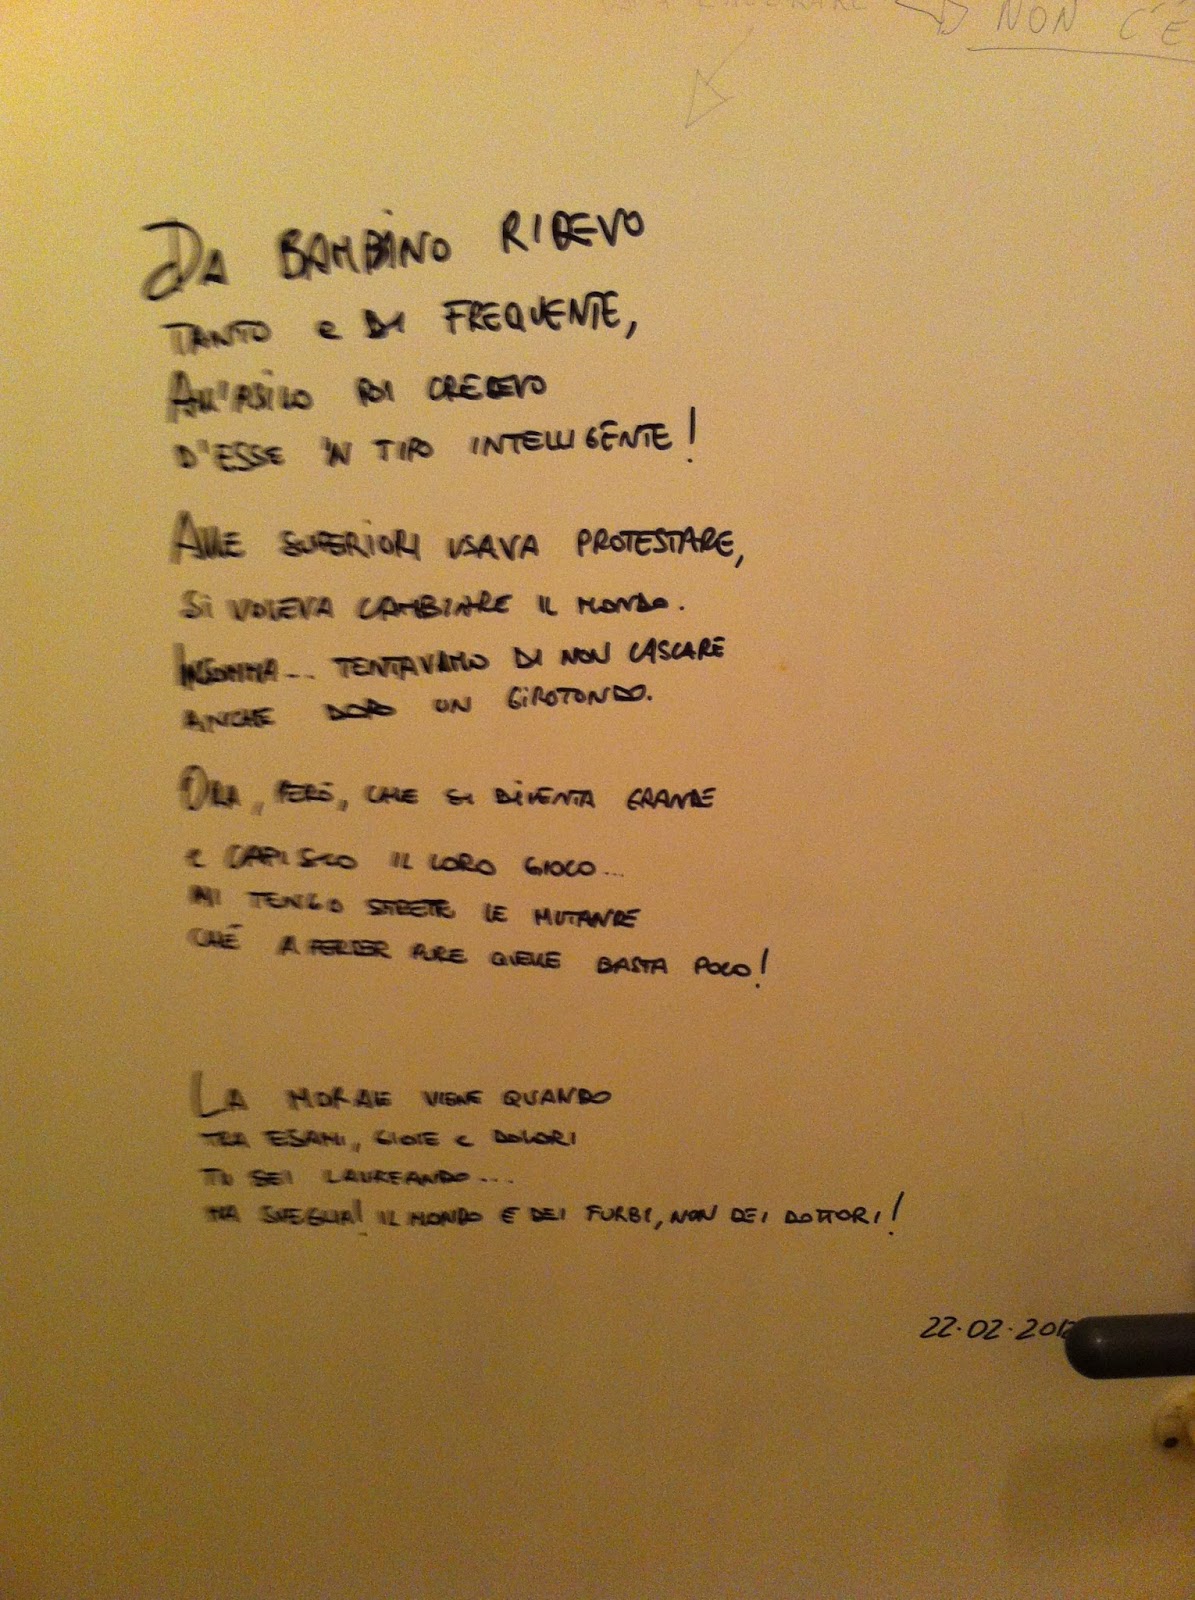 NON C'È
DA BAMBINO RIDEVO
TANTO e DI FREQUENTE,
ALL'ASILO POI CREDEVO
D'ESSE 'N TIPO INTELLIGENTE!
ALLE SUPERIORI USAVA PROTESTARE,
SI VOLEVA CAMBIARE IL MONDO.
INSOMMA... TENTAVAMO DI NON CASCARE
ANCHE DOPO UN GIROTONDO.
ORA, PERÒ, CHE SI DIVENTA GRANDE
e CAPISCO IL LORO GIOCO...
MI TENGO STRETTE LE MUTANDE
CHÉ A PERDER PURE QUELLE BASTA POCO!
LA MORALE VIENE QUANDO
TRA ESAMI, GIOIE e DOLORI
TU SEI LAUREANDO...
MA SVEGLIA! IL MONDO È DEI FURBI, NON DEI DOTTORI!
22.02.201